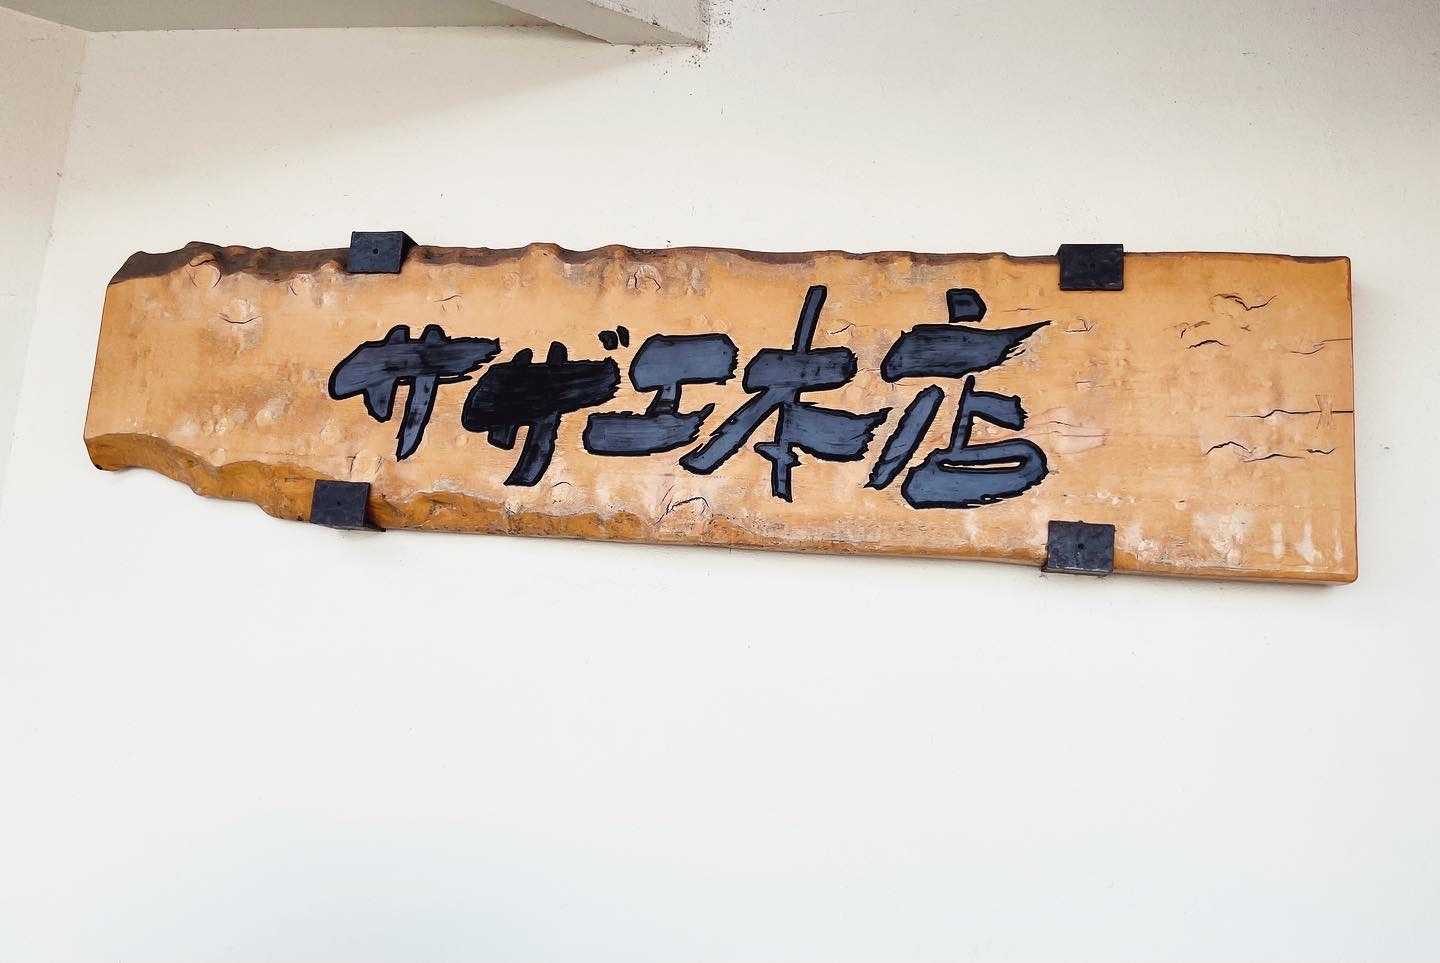 サザエ本店